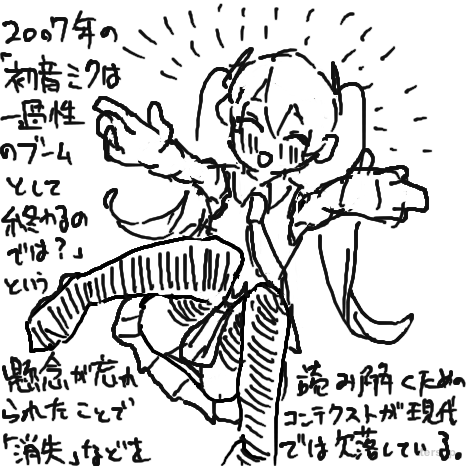 2007年の
「初音ミクは
一過性
のブーム
として
終わるの
では？」
という
懸念が忘れ
られたことで
「消失」などを
読み解くための
コンテクストが現代
では欠落している。